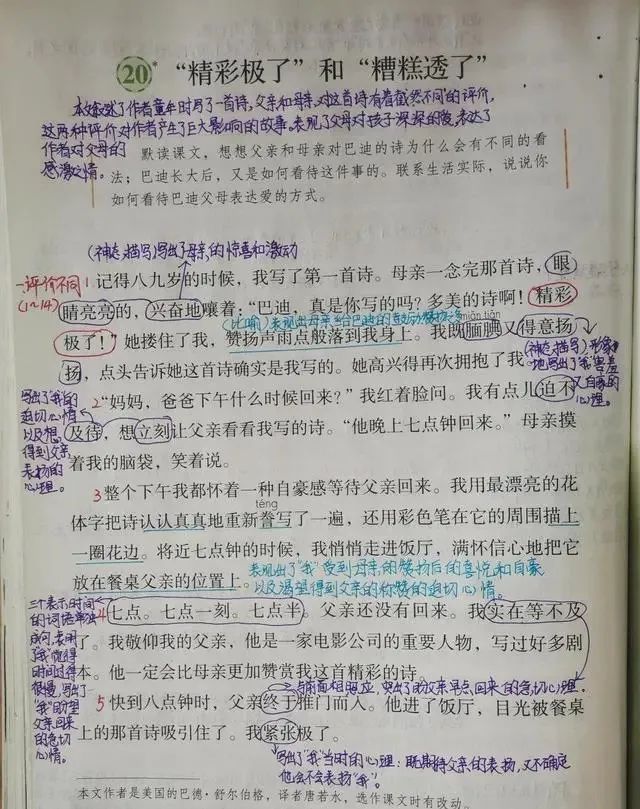 20* “精彩极了”和“糟糕透了”
本文叙述了作者童年时写了一首诗,父亲和母亲对这首诗有着截然不同的评价,
这两种评价对作者产生了巨大影响的故事。表现了父母对孩子深深的爱,表达了
作者对父母的
感激之情。
默读课文,想想父亲和母亲对巴迪的诗为什么会有不同的看
法;巴迪长大后,又是如何看待这件事的。联系生活实际,说说你
如何看待巴迪父母表达爱的方式。
(神态描写)写出了母亲的惊喜和激动
一评价不同
(1~14)
1 记得八九岁的时候,我写了第一首诗。母亲一念完那首诗,眼
睛亮亮的,兴奋地嚷着:“巴迪,真是你写的吗?多美的诗啊!精彩
miǎn tiǎn
极了!”她搂住了我,赞扬声雨点般落到我身上。我既腼腆又得意扬
扬,点头告诉她这首诗确实是我写的。她高兴得再次拥抱了我。
(神态描写)形象
地写出了“我”害羞
又自豪的
心理。
写出了“我”的
迫切心情
以及想
得到父亲
表扬的
心理。
2 “妈妈,爸爸下午什么时候回来?”我红着脸问。我有点儿迫不
及待,想立刻让父亲看看我写的诗。“他晚上七点钟回来。”母亲摸
着我的脑袋,笑着说。
3 整个下午我都怀着一种自豪感等待父亲回来。我用最漂亮的花
téng
体字把诗认认真真地重新誊写了一遍,还用彩色笔在它的周围描上
一圈花边。将近七点钟的时候,我悄悄走进饭厅,满怀信心地把它
放在餐桌父亲的位置上。
表现出了“我”受到母亲的赞扬后的喜悦和自豪
以及渴望得到父亲的称赞的迫切心情。
三个表示时间
的词语单独
成句,表明
了“我”觉得
时间过得
很慢,写出了
“我”盼望
父亲回来
的急切
心情。
4 七点。七点一刻。七点半。父亲还没有回来。我实在等不及
了。我敬仰我的父亲,他是一家电影公司的重要人物,写过好多剧
本。他一定会比母亲更加赞赏我这首精彩的诗。
与前面相照应,突出了盼父亲早点回来的急切心理。
5 快到八点钟时,父亲终于推门而入。他进了饭厅,目光被餐桌
上的那首诗吸引住了。我紧张极了。
写出了“我”当时的心理:既期待父亲的表扬,又不确定
他会不会表扬“我”。
本文作者是美国的巴德·舒尔伯格,译者唐若水,选作课文时有改动。